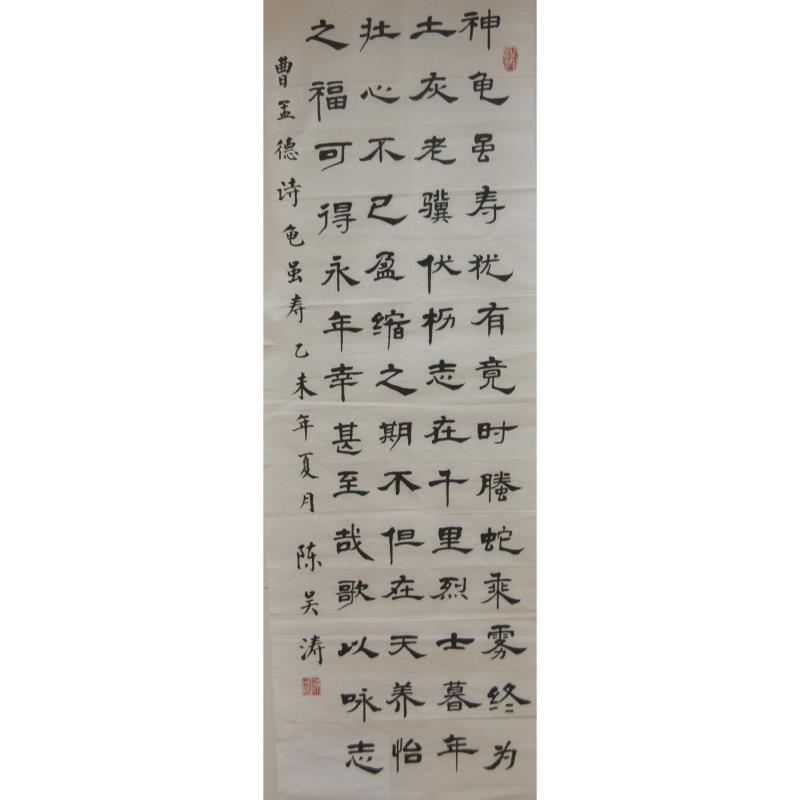 神龟虽寿犹有竟时螣蛇乘雾终为
土灰老骥伏枥志在千里烈士暮年
壮心不已盈缩之期不但在天养怡
之福可得永年幸甚至哉歌以咏志
曹孟德诗龟虽寿乙未年夏月陈吴涛